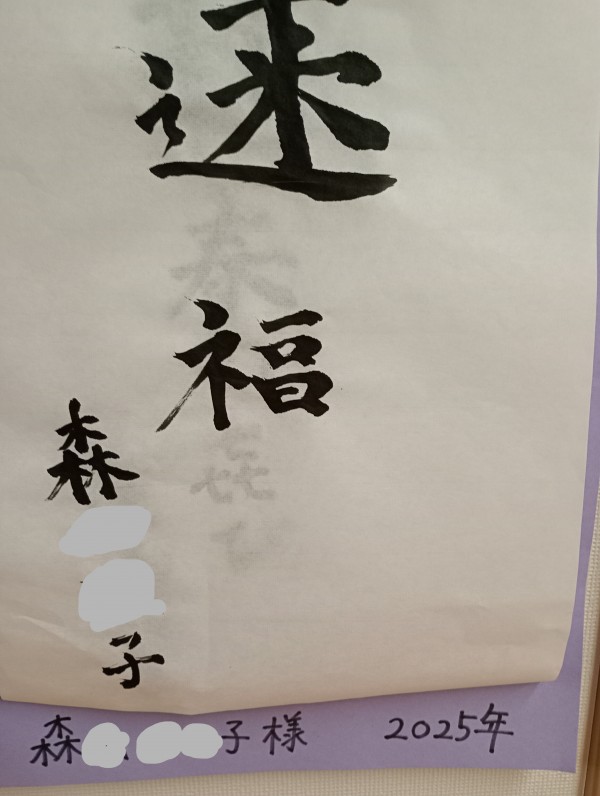 福
森
子
森 子様 2025年